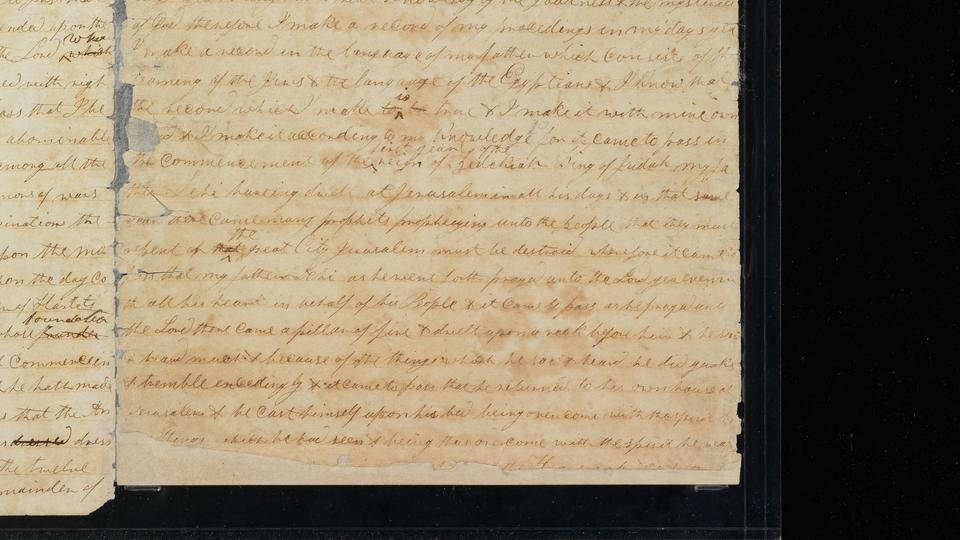 nded upon the
the Lord which who
ed with righ
ass that I be
abominable
among all the
mons of wars
ination the
pon the mu
on the day co
n of Harlots
whose founder foundation
t Commencein
t he hath made
s that the An
dressed dress
the twelve
mainder of
of God therefore I make a record of my proceedings in my days yea
I make a record in the language of my father which consists of th
learning of the Jews & the language of the Egyptians & I know that
the record which I make is true & I make it with mine own
& I make it according to my knowledge for it came to pass in
the commencement of the first year of the reign of Zedekiah King of Judah my fa
Lehi haveing dwelt at Jerusalem in all his days & in that same
year there came many prophets prophesying unto the people that they must
repent or that the great City Jerusalem must be destroid wherefore it came
that my father Lehi as he went forth prayed unto the Lord yea even
th all his heart in behalf of his People & it came to pass as he prayed unto
the Lord there came a pillar of fire & dwelt upon a rock before him & he saw
& heard much & because of the things which he saw & heard he did quake
& tremble exceedingly & it came to pass that he returned to his own house at
Jerusalem & he cast himself upon his bed being overcome with the spirit &
things which he had seen & being thus overcome with the spirit he was